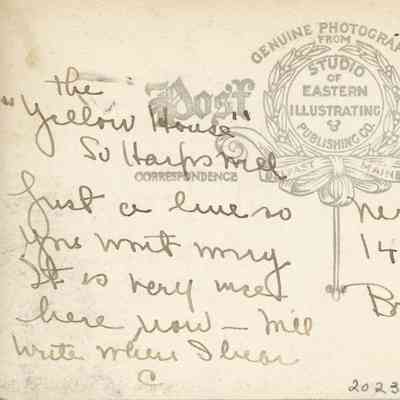 the
"Yellow House"
So Harpswell
Just a line so
you wont worry
It is very nice
here now – Will
write when I hear
C
Post
CORRESPONDENCE
GENUINE PHOTOGRA
FROM
STUDIO
OF
EASTERN
ILLUSTRATING
&
PUBLISHING CO.
FAST MAINE
14
2023